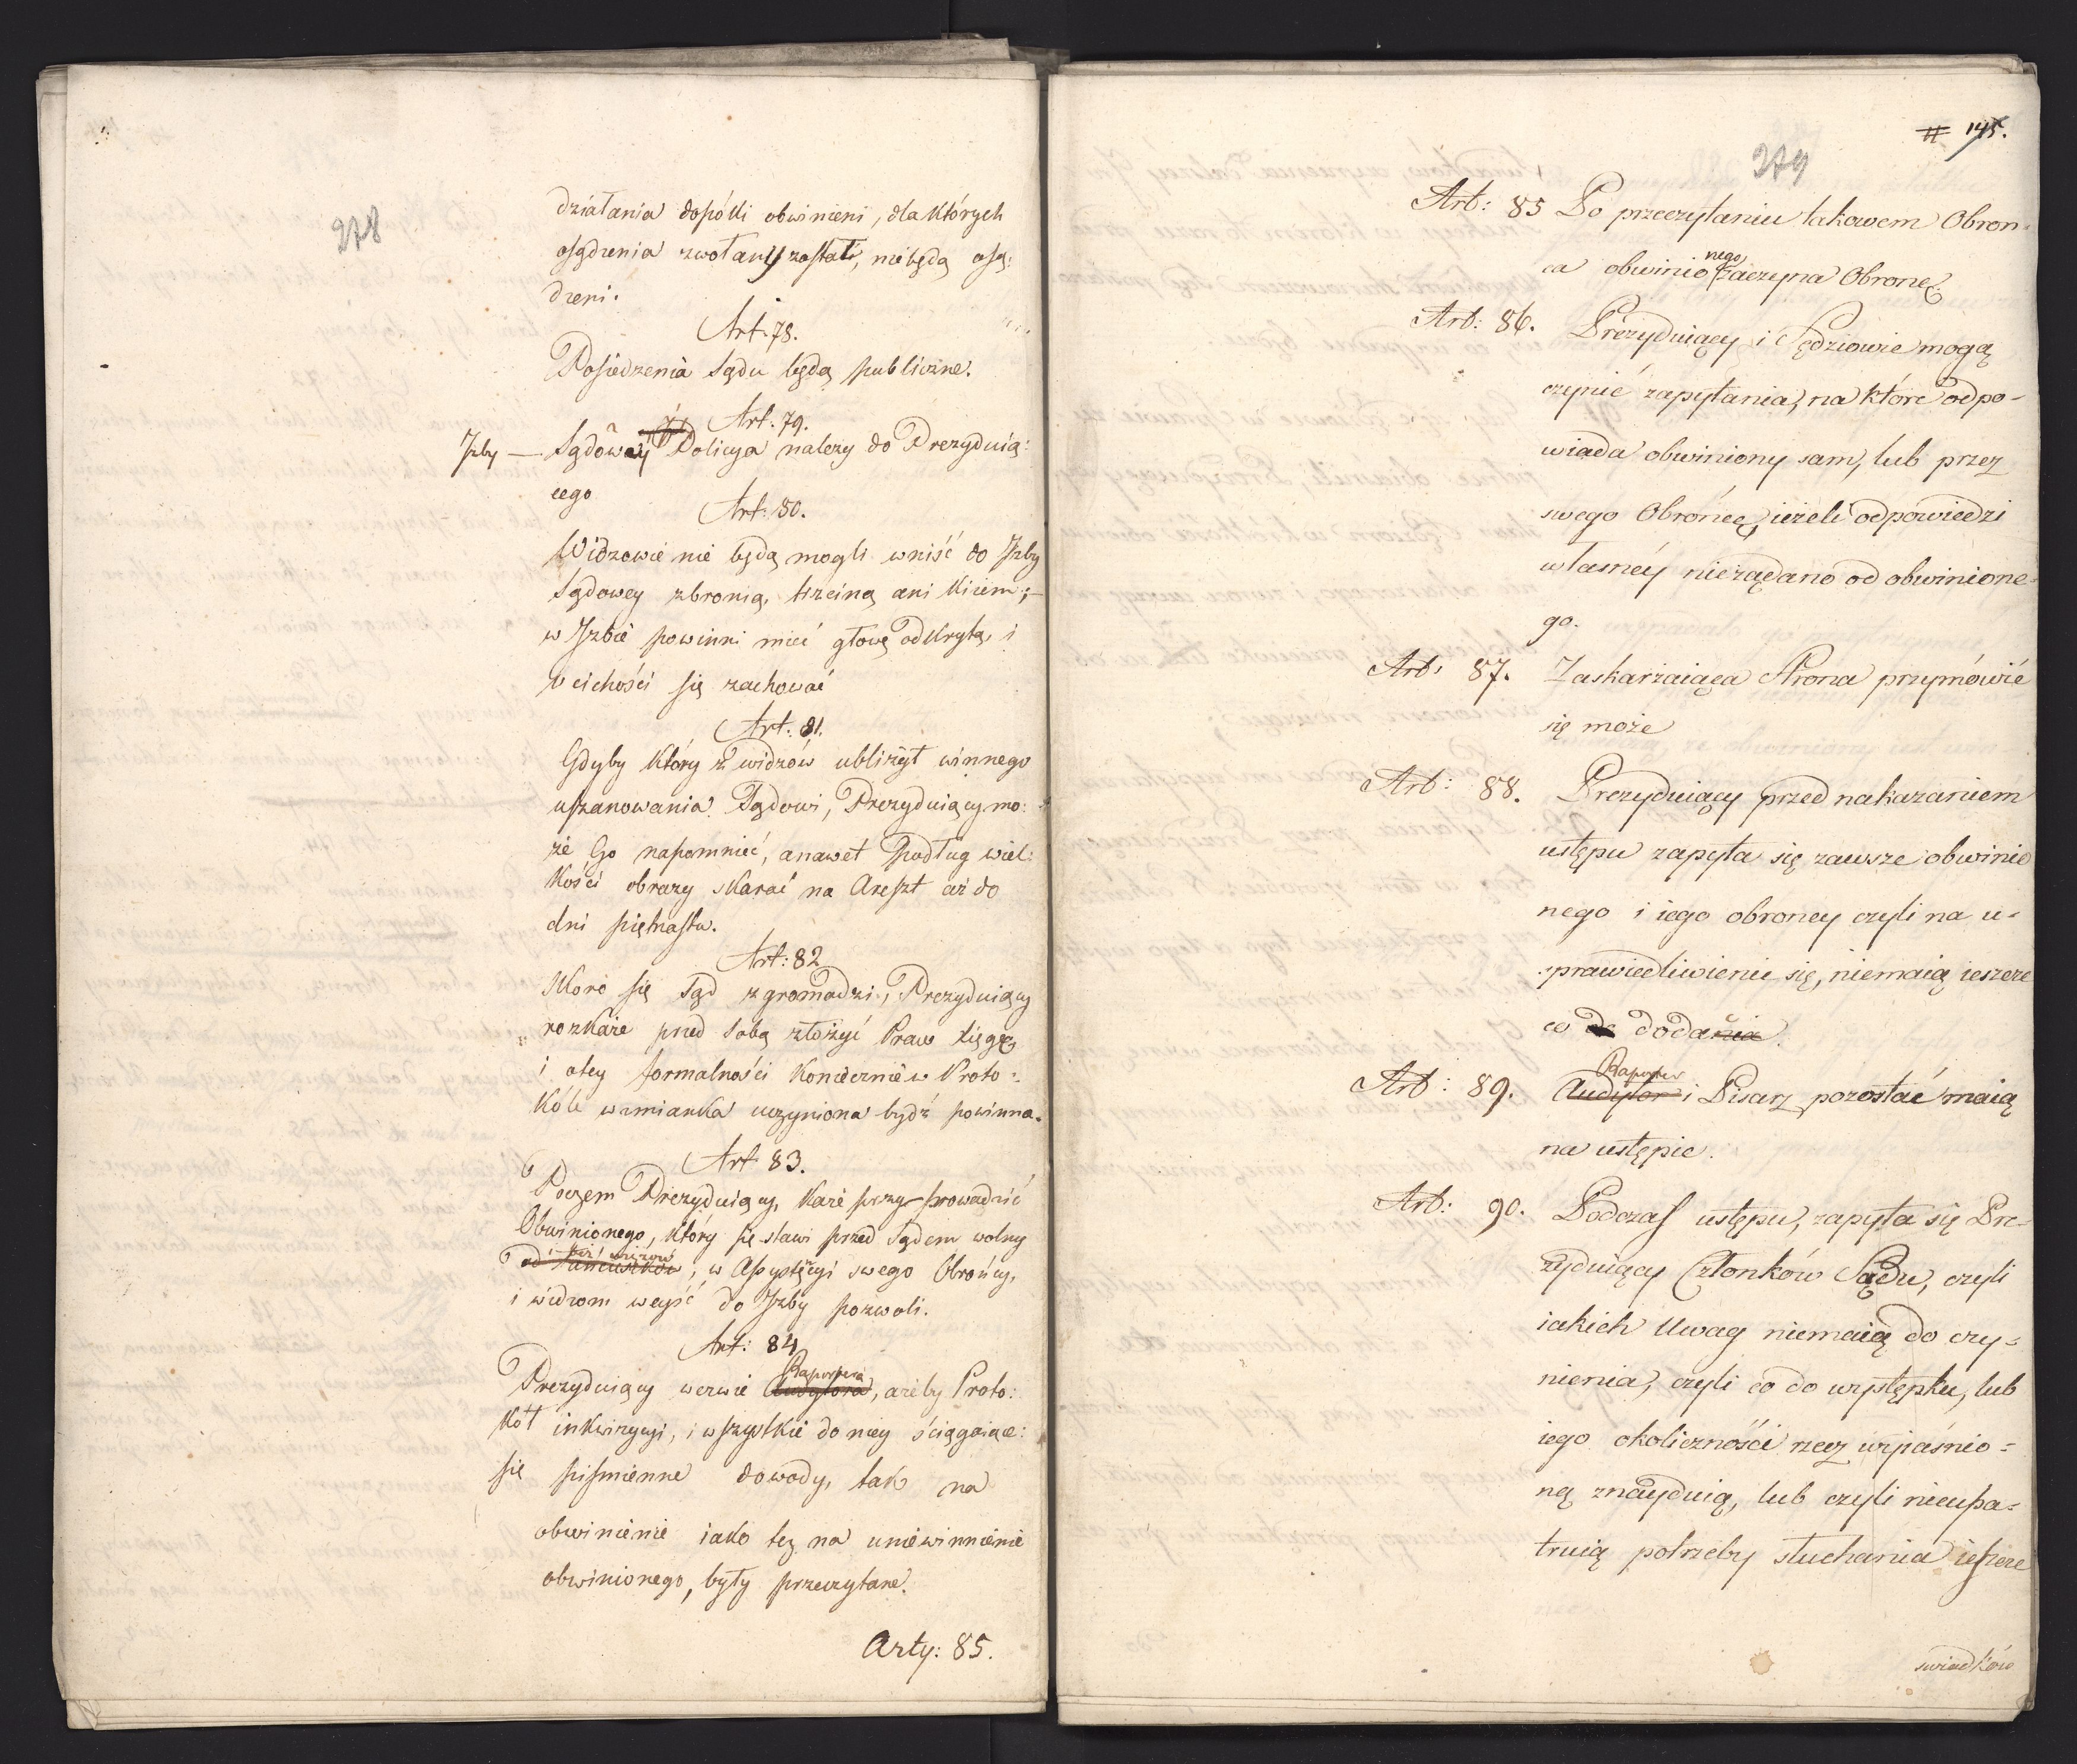 278
działania dopóki obwinieni, dla których
osądzenia zwołany został, niebędą osą:
dzeni.
Art. 78.
Posiedzenia Sądu będą publiczne.
Art. 79.
Izby — Sądowéy Policya nalezy do Prezyduią:
cego
Art. 80.
Widzowie nie będą mogli wniść do Izby
Sądowey zbronią, trzciną ani kiiem; —
w Izbie powinni mieć głowę odkrytą, i
w cichości się zachować
Art: 81.
Gdyby który z widzów ubliżył winnego
uszanowania Sądowi, Prezyduiący mo:
że Go napomnieć, anawet podług wiel:
kości obrazy skarać na Areszt aż do
dni piętnastu.
Art: 82
Skoro się Sąd zgromadzi, Prezyduiący
rozkaże przed sobą złożyć Praw xięgę
i otey formalności koniecznie w Proto:
kóle wzmianka uczyniona bydź powinna.
Art 83.
Poczem Prezyduiący, każe przyprowadzić
Obwinionego, który się stawi przed Sądem wolny
od łańcuszków, w Assystęcyi swego Obrońcy,
i widzom weyść do Izby pozwoli.
Art: 84
Raportera
Prezyduiący wezwie Audytora, ażeby Proto:
kół inkwizycyi, i wszystkie do niey ściągaiące:
się piśmienne dowody, tak na
obwinienie iako tez na uniewinnienie
obwinionego, były przeczytane.
Arty: 85.
# 145.
279
Art: 85 Po przeczytaniu takowem Obron-
nego
ca obwinio zaczyna Obronę.
Art: 86. Prezyduiący i Sędziowie mogą
czynić zapytania, na które odpo-
wiada obwiniony sam, lub przez
swego Obrońcę, ieżeli odpowiedzi
własnéy nieżądano od obwinione-
go.
Art: 87. Zaskarżaiąca Strona przymówić
się może
Art: 88. Prezyduiący przed nakazaniem
ustępu zapyta się zawsze obwinio
nego i iego obroncy czyli na u-
sprawiedliwienie się, niemaią ieszcze
co do dodania.
Raporter
Art: 89. Audytor i Pisarz pozostać maią
na ustępie.
Art: 90. Podczas ustępu, zapyta się Pre-
zyduiący Członków Sądu, czyli
iakich Uwag niemaią do czy-
nienia, czyli co do występku, lub
iego okoliczności rzecz wyiaśnio-
ną znayduią, lub czyli nieupa-
truią potrzeby słuchania ieszcze
swiadków